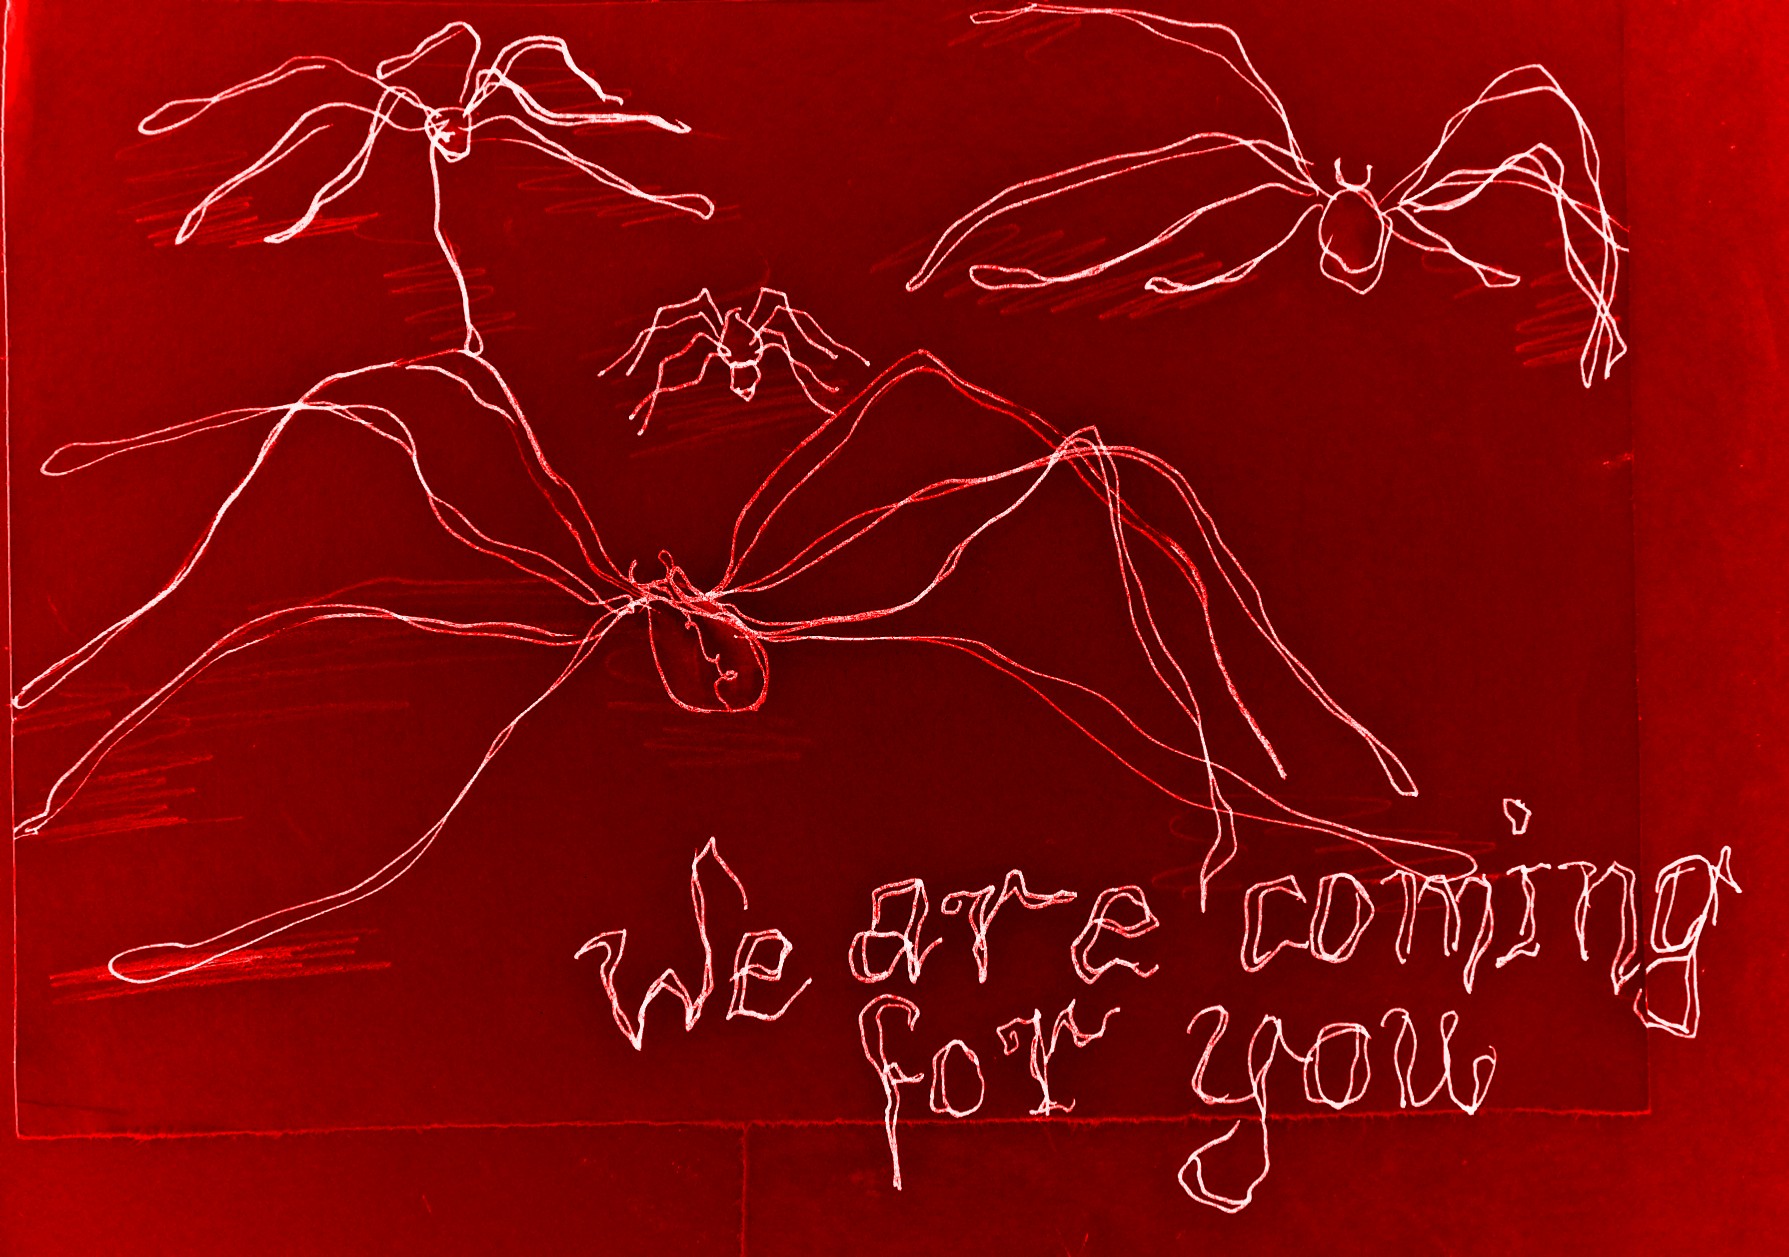 We are coming
for you